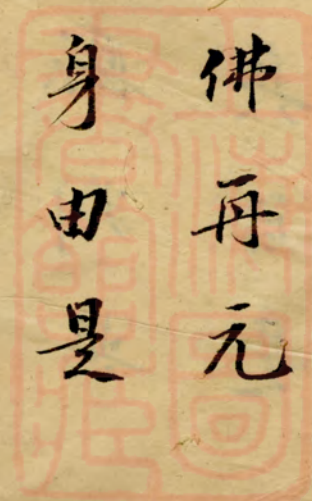 佛再元
身由是